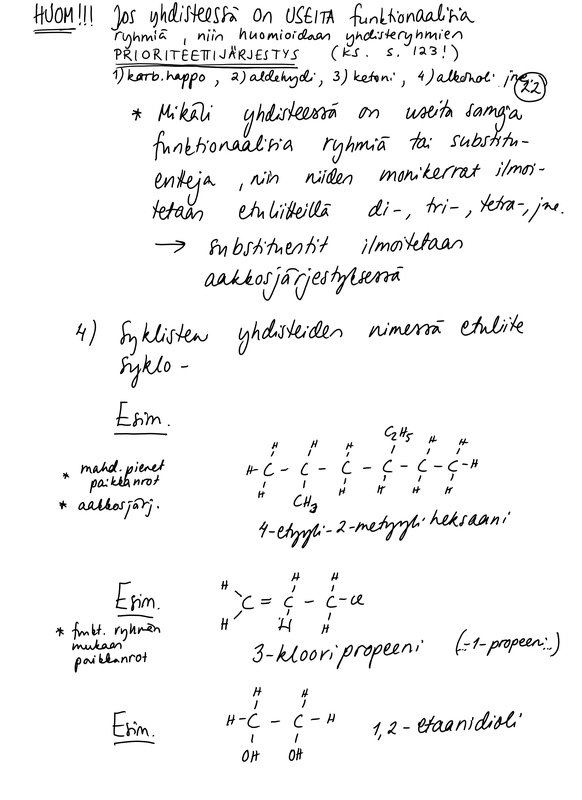 HUOM!!! Jos yhdisteessä on USEITA funktionaalisia
ryhmiä, niin huomioidaan yhdisteryhmien
PRIORITEETTIJÄRJESTYS (ks. s. 123!)
1) karb.happo, 2) aldehydi, 3) ketoni, 4) alkoholi jne.
22
* Mikäli yhdisteessä on useita samoja
funktionaalisia ryhmiä tai substitu-
entteja, niin niiden monikerrat ilmoi-
tetaan etuliitteillä di-, tri-, tetra-, jne.
→ substituentit ilmoitetaan
aakkosjärjestyksessä
4) Syklisten yhdisteiden nimessä etuliite
syklo-
Esim.
* mahd. pienet
paikkanrot
* aakkosjärj.
C₂H₅
H H H H H
H-C - C - C - C - C - C-H
H CH₃ H H H H
4-etyyli-2-metyyliheksaani
Esim.
* funkt. ryhmän
mukaan
paikkanrot
H H H
C = C - C-Cl
H H H
3-klooripropeeni (..-1-propeeni..)
Esim.
H H
H-C - C-H
OH OH
1,2-etaanidioli